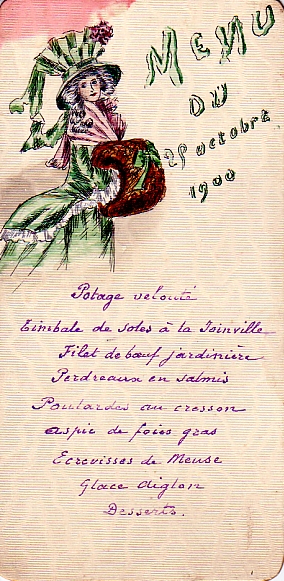 Menu
du
25 octobre
1900
Potage velouté
Timbale de soles à la Joinville
Filet de bœuf jardinière
Perdreaux en salmis
Poulardes au cresson
Aspic de foies gras
Ecrevisses de Meuse
Glace Aiglon
Desserts.